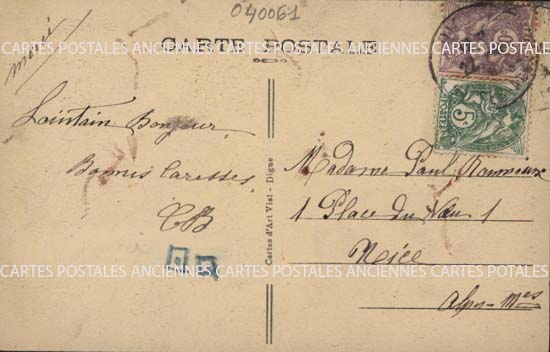 040061
CARTE POSTALE
merci
Lointain Bonjour
Bonnes Caresses
CB
Cartes d'Art Vial - Digue
5c
POSTES
10
Madame Paul
1 Place du Vau 1
Nice
Alpes-Mmes
CARTES POSTALES ANCIENNES CARTES POSTALES ANCIENNES CARTES POSTALES ANCIENNES
CARTES POSTALES ANCIENNES CARTES POSTALES ANCIENNES CARTES POSTALES ANCIENNES